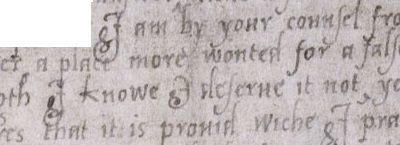 I am by your counsel fro
a place more wonted for a fals
oth I knowe I deserue it not ye
es that it is prouid wiche I pra